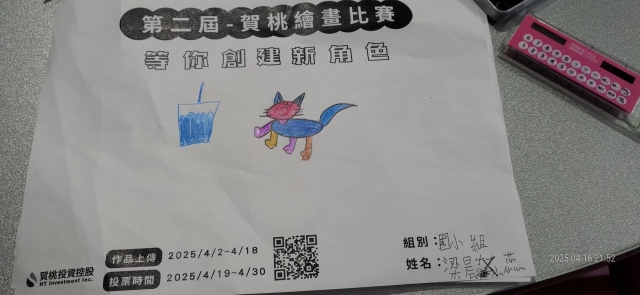 第二屆-賀桃繪畫比賽
等你創建新角色
作品上傳 2025/4/2~4/18
投票時間 2025/4/19~4/30
賀桃投資控股
HT Investment Inc.
組別：國小組
姓名：梁晨
2025.04.16 21:52